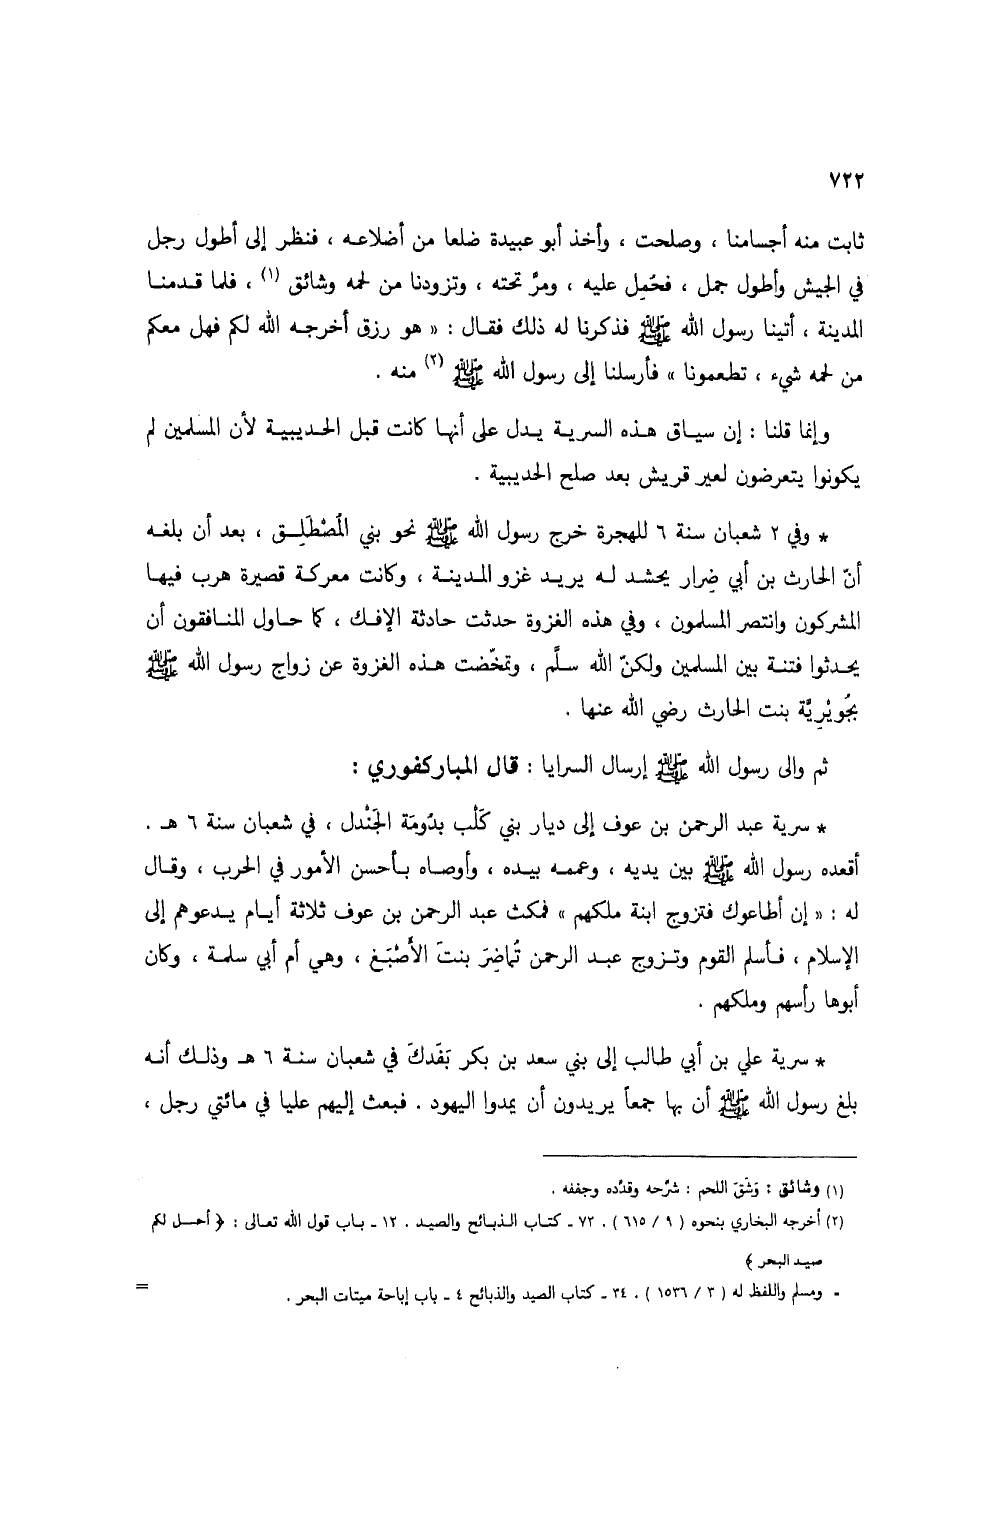 ٧٢٢
ثابت منه أجسامنا ، وصلحت ، وأخذ أبو عبيدة ضلعا من أضلاعه ، فنظر إلى أطول رجل
في الجيش وأطول جمل ، فحُمِل عليه ، ومرَّ تحته ، وتزودنا من لحمه وشائق (١) ، فلما قدمنا
المدينة ، أتينا رسول الله ﷺ فذكرنا له ذلك فقال : « هو رزق أخرجه الله لكم فهل معكم
من لحمه شيء ، تطعمونا » فأرسلنا إلى رسول الله ﷺ (٢) منه .
وإنما قلنا : إن سياق هذه السرية يدل على أنها كانت قبل الحديبية لأن المسلمين لم
يكونوا يتعرضون لعير قريش بعد صلح الحديبية .
* وفي ٢ شعبان سنة ٦ للهجرة خرج رسول الله ﷺ نحو بني المُصْطَلِق ، بعد أن بلغه
أنّ الحارث بن أبي ضِرار يحشد له يريد غزو المدينة ، وكانت معركة قصيرة هرب فيها
المشركون وانتصر المسلمون ، وفي هذه الغزوة حدثت حادثة الإفك ، كما حاول المنافقون أن
يحدثوا فتنة بين المسلمين ولكنّ الله سلَّم ، وتمخّضت هذه الغزوة عن زواج رسول الله ﷺ
بجُوَيْرِيَّة بنت الحارث رضي الله عنها .
ثم والى رسول الله ﷺ إرسال السرايا : قال المباركفوري :
* سرية عبد الرحمن بن عوف إلى ديار بني كَلْب بدُومَة الجَنْدل ، في شعبان سنة ٦ هـ .
أقعده رسول الله ﷺ بين يديه ، وعممه بيده ، وأوصاه بأحسن الأمور في الحرب ، وقال
له : « إن أطاعوك فتزوج ابنة ملكهم » فمكث عبد الرحمن بن عوف ثلاثة أيام يدعوهم إلى
الإسلام ، فأسلم القوم وتزوج عبد الرحمن تُماضِرَ بنتَ الأَصْبَغ ، وهي أم أبي سلمة ، وكان
أبوها رأسهم وملكهم .
* سرية علي بن أبي طالب إلى بني سعد بن بكر بَفَدكَ في شعبان سنة ٦ هـ وذلك أنه
بلغ رسول الله ﷺ أن بها جمعاً يريدون أن يمدوا اليهود . فبعث إليهم عليا في مائتي رجل ،
(١) وشائق : وَشَقَ اللحم : شرَّحه وقدَّده وجففه .
(٢) أخرجه البخاري بنحوه ( ٩ / ٦١٥ ) . ٧٢ ـ كتاب الذبائح والصيد . ١٢ ـ باب قول الله تعالى : ﴿ أحل لكم
صيد البحر ﴾
ـ ومسلم واللفظ له ( ٣ / ١٥٣٦ ) . ٣٤ ـ كتاب الصيد والذبائح ٤ ـ باب إباحة ميتات البحر . =